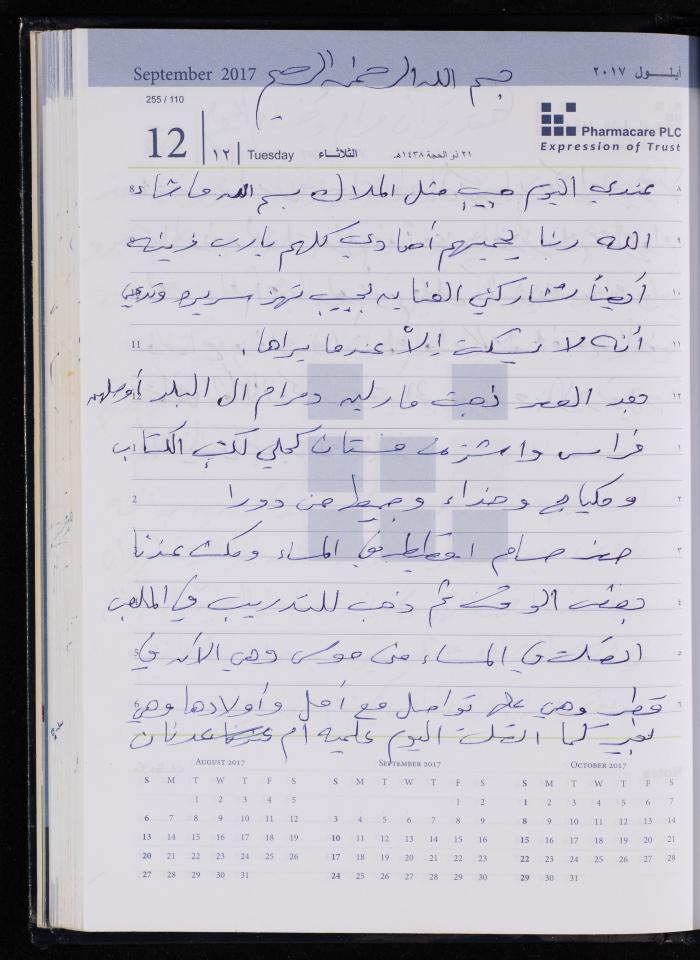 September 2017 بسم الله الرحمن الرحيم أيلول ٢٠١٧
255 / 110
12 ١٢ Tuesday الثلاثاء ٢١ ذو الحجة ١٤٣٨هـ
Pharmacare PLC
Expression of Trust
8 عندي اليوم حبيب مثل الملاك بسم الله ما شاء ٨
الله ربنا يحميهم أحفادي كلهم يارب زينه ٩
أيضاً تشاركني العناية بحبيب تهز سريره وتدعي ١٠
11 أنه لا يسكت إلاّ عندما يراها. ١١
بعد العصر ذهبت مارلين ومرام الى البلد أوصلهن ١٢
فراس واشترت فستان كحلي لكتب الكتاب ١
2 ومكياج وحذاء من دورا ٢
حضر حسام في المساء ومكث عندنا ٣
بعض الوقت ثم ذهب للتدريب في الملعب ٤
5 اتصلت في المساء وهي الآن في ٥
6 قطر وهي على تواصل مع أمل وأولادها وهي ٦
بخير كما اتصلت اليوم عليه أم عدنان
AUGUST 2017
S M T W T F S
1 2 3 4 5
6 7 8 9 10 11 12
13 14 15 16 17 18 19
20 21 22 23 24 25 26
27 28 29 30 31
SEPTEMBER 2017
S M T W T F S
1 2
3 4 5 6 7 8 9
10 11 12 13 14 15 16
17 18 19 20 21 22 23
24 25 26 27 28 29 30
OCTOBER 2017
S M T W T F S
1 2 3 4 5 6 7
8 9 10 11 12 13 14
15 16 17 18 19 20 21
22 23 24 25 26 27 28
29 30 31